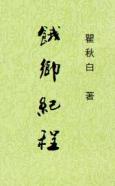 餓鄉紀程
瞿秋白 著